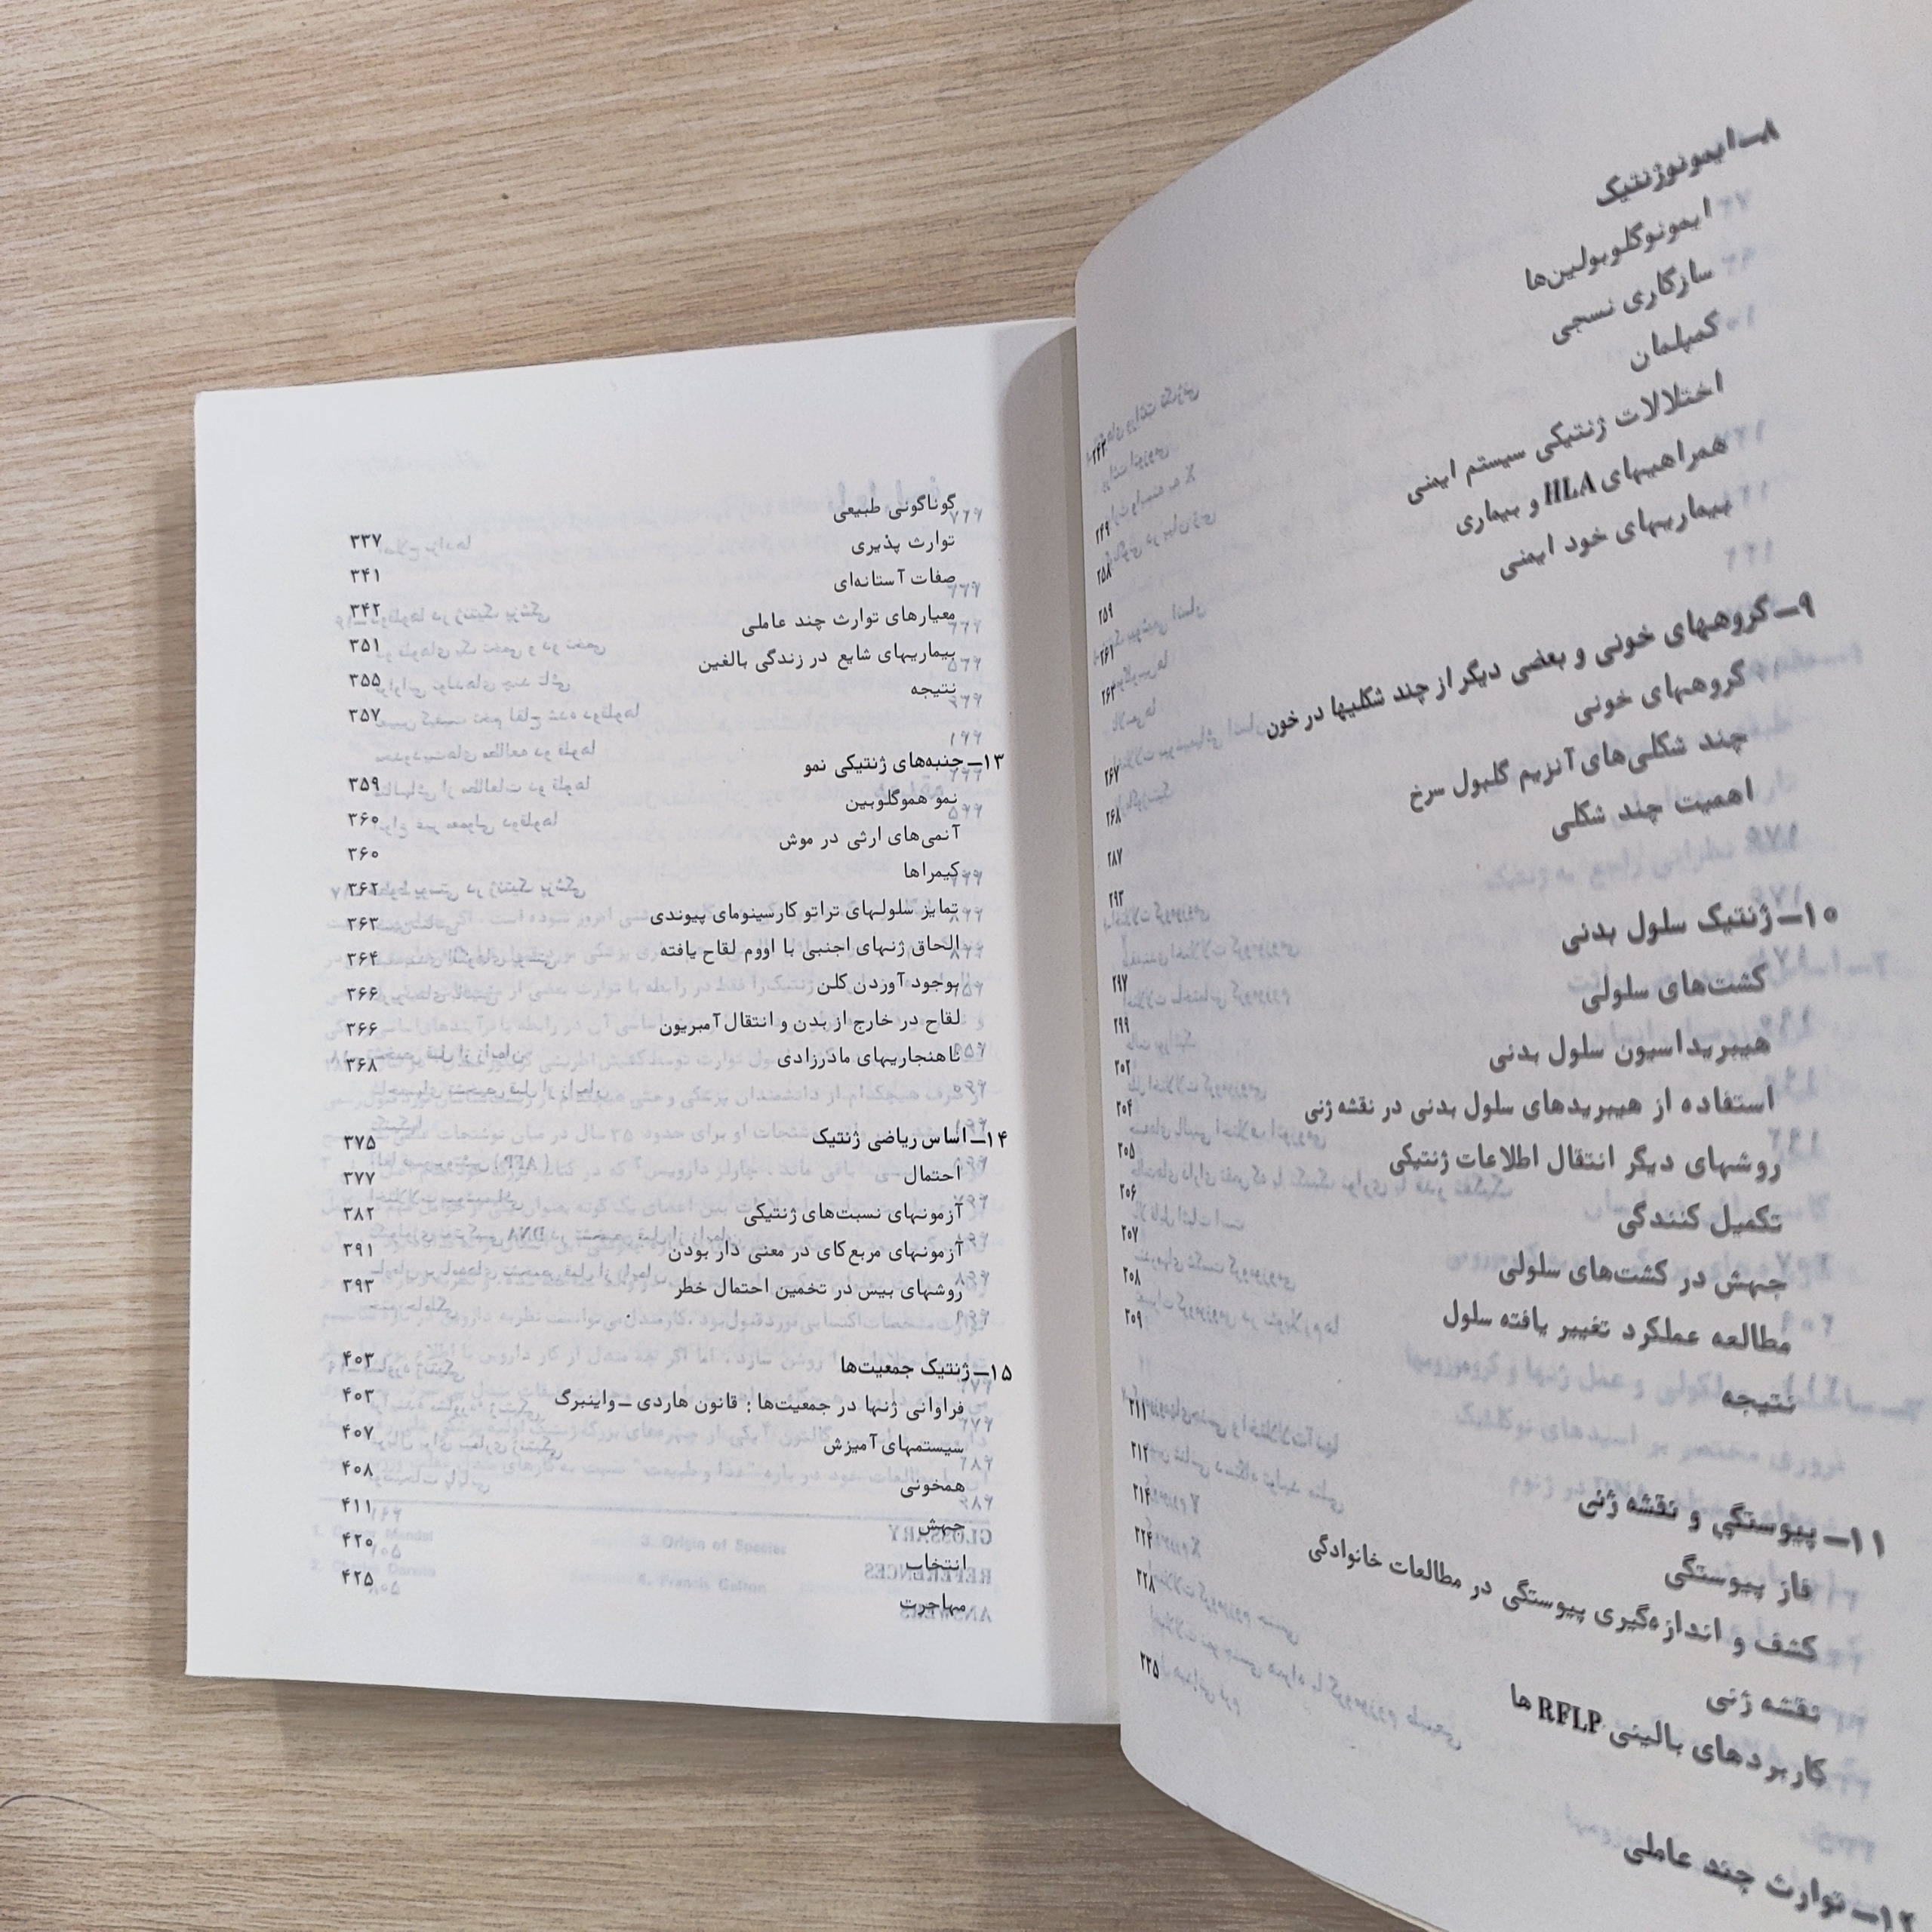 ۸ــ ایمونوژنتیک ۲۴۳
ایمونوگلوبولین‌ها
سازگاری نسجی ۲۴۹
کمپلمان ۲۵۸
اختلالات ژنتیکی سیستم ایمنی ۲۵۹
همراهیهای HLA و بیماری ۲۶۱
بیماریهای خود ایمنی ۲۶۳
۹ــ گروههای خونی و بعضی دیگر از چند شکلیها در خون ۲۶۷
گروههای خونی ۲۶۸
چند شکلی‌های آنزیم گلبول سرخ ۲۸۷
اهمیت چند شکلی ۲۹۳
۱۰ــ ژنتیک سلول بدنی ۲۹۷
کشت‌های سلولی ۲۹۹
هیبریداسیون سلول بدنی ۳۰۲
استفاده از هیبریدهای سلول بدنی در نقشه ژنی ۳۰۴
روشهای دیگر انتقال اطلاعات ژنتیکی ۳۰۵
تکمیل کنندگی ۳۰۶
جهش در کشت‌های سلولی ۳۰۷
مطالعه عملکرد تغییر یافته سلول ۳۰۸
نتیجه ۳۰۹
۱۱ــ پیوستگی و نقشه ژنی ۳۱۱
فاز پیوستگی ۳۱۲
کشف و اندازه‌گیری پیوستگی در مطالعات خانوادگی ۳۱۴
نقشه ژنی ۳۲۴
کاربردهای بالینی RFLP ها ۳۲۸
۱۲ــ توارث چند عاملی ۳۳۵
گوناگونی طبیعی ۳۳۷
توارث پذیری ۳۴۱
صفات آستانه‌ای ۳۴۲
معیارهای توارث چند عاملی ۳۵۱
بیماریهای شایع در زندگی بالغین ۳۵۵
نتیجه ۳۵۷
۱۳ــ جنبه‌های ژنتیکی نمو ۳۵۹
نمو هموگلوبین ۳۶۰
آنمی‌های ارثی در موش ۳۶۰
کیمراها ۳۶۲
تمایز سلولهای تراتو کارسینومای پیوندی ۳۶۳
الحاق ژنهای اجنبی با اووم لقاح یافته ۳۶۴
بوجود آوردن کلن ۳۶۶
لقاح در خارج از بدن و انتقال آمبریون ۳۶۶
ناهنجاریهای مادرزادی ۳۶۸
۱۴ــ اساس ریاضی ژنتیک ۳۷۵
احتمال ۳۷۷
آزمونهای نسبت‌های ژنتیکی ۳۸۲
آزمونهای مربع‌کای در معنی دار بودن ۳۹۱
روشهای بیس در تخمین احتمال خطر ۳۹۳
۱۵ــ ژنتیک جمعیت‌ها ۴۰۳
فراوانی ژنها در جمعیت‌ها : قانون هاردی ــ واینبرگ ۴۰۳
سیستمهای آمیزش ۴۰۷
همخونی ۴۰۸
جهش ۴۱۱
انتخاب ۴۲۰
مهاجرت ۴۲۵